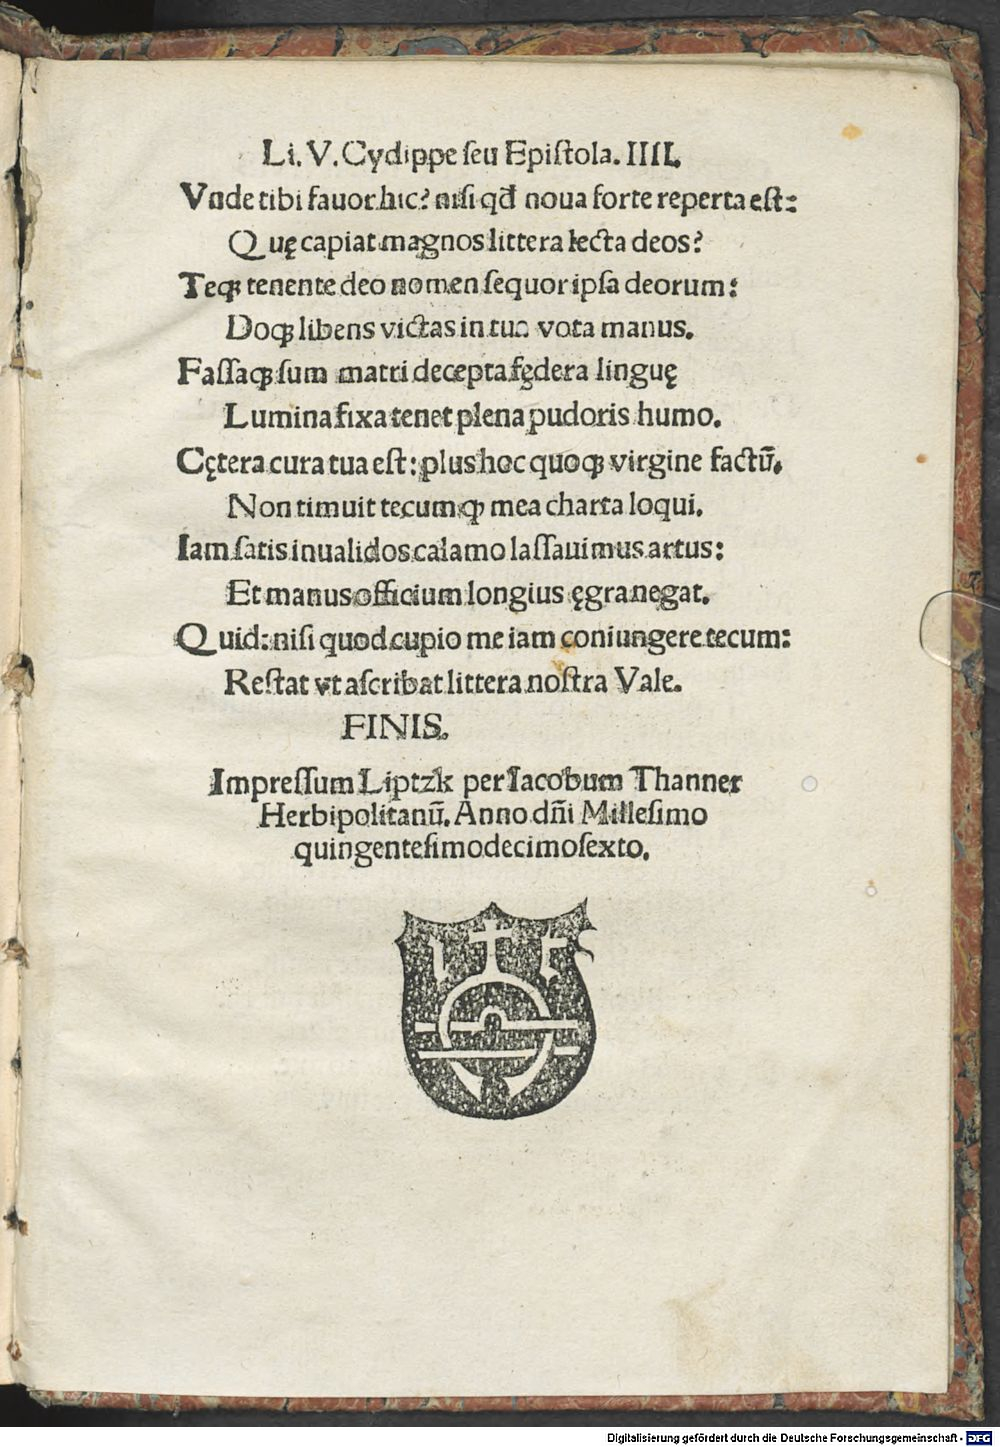 Li. V. Cydippe seu Epistola. IIII.
Vnde tibi fauor hic? nisi qđ noua forte reperta est:
Quę capiat magnos littera lecta deos?
Teqꝫ tenente deo nomen sequor ipsa deorum:
Doqꝫ libens victas in tua vota manus.
Fassaqꝫ sum matri decepta fędera linguę
Lumina fixa tenet plena pudoris humo.
Cętera cura tua est: plus hoc quoqꝫ virgine factū.
Non timuit tecum qꝫ mea charta loqui.
Iam satis inualidos calamo lassauimus artus:
Et manus officium longius ęgra negat.
Quid: nisi quod cupio me iam coniungere tecum:
Restat vt ascribat littera nostra Vale.
FINIS.
Impressum Liptzk per Iacobum Thanner
Herbipolitanū. Anno dn̄i Millesimo
quingentesimodecimosexto.
Digitalisierung gefördert durch die Deutsche Forschungsgemeinschaft - DFG